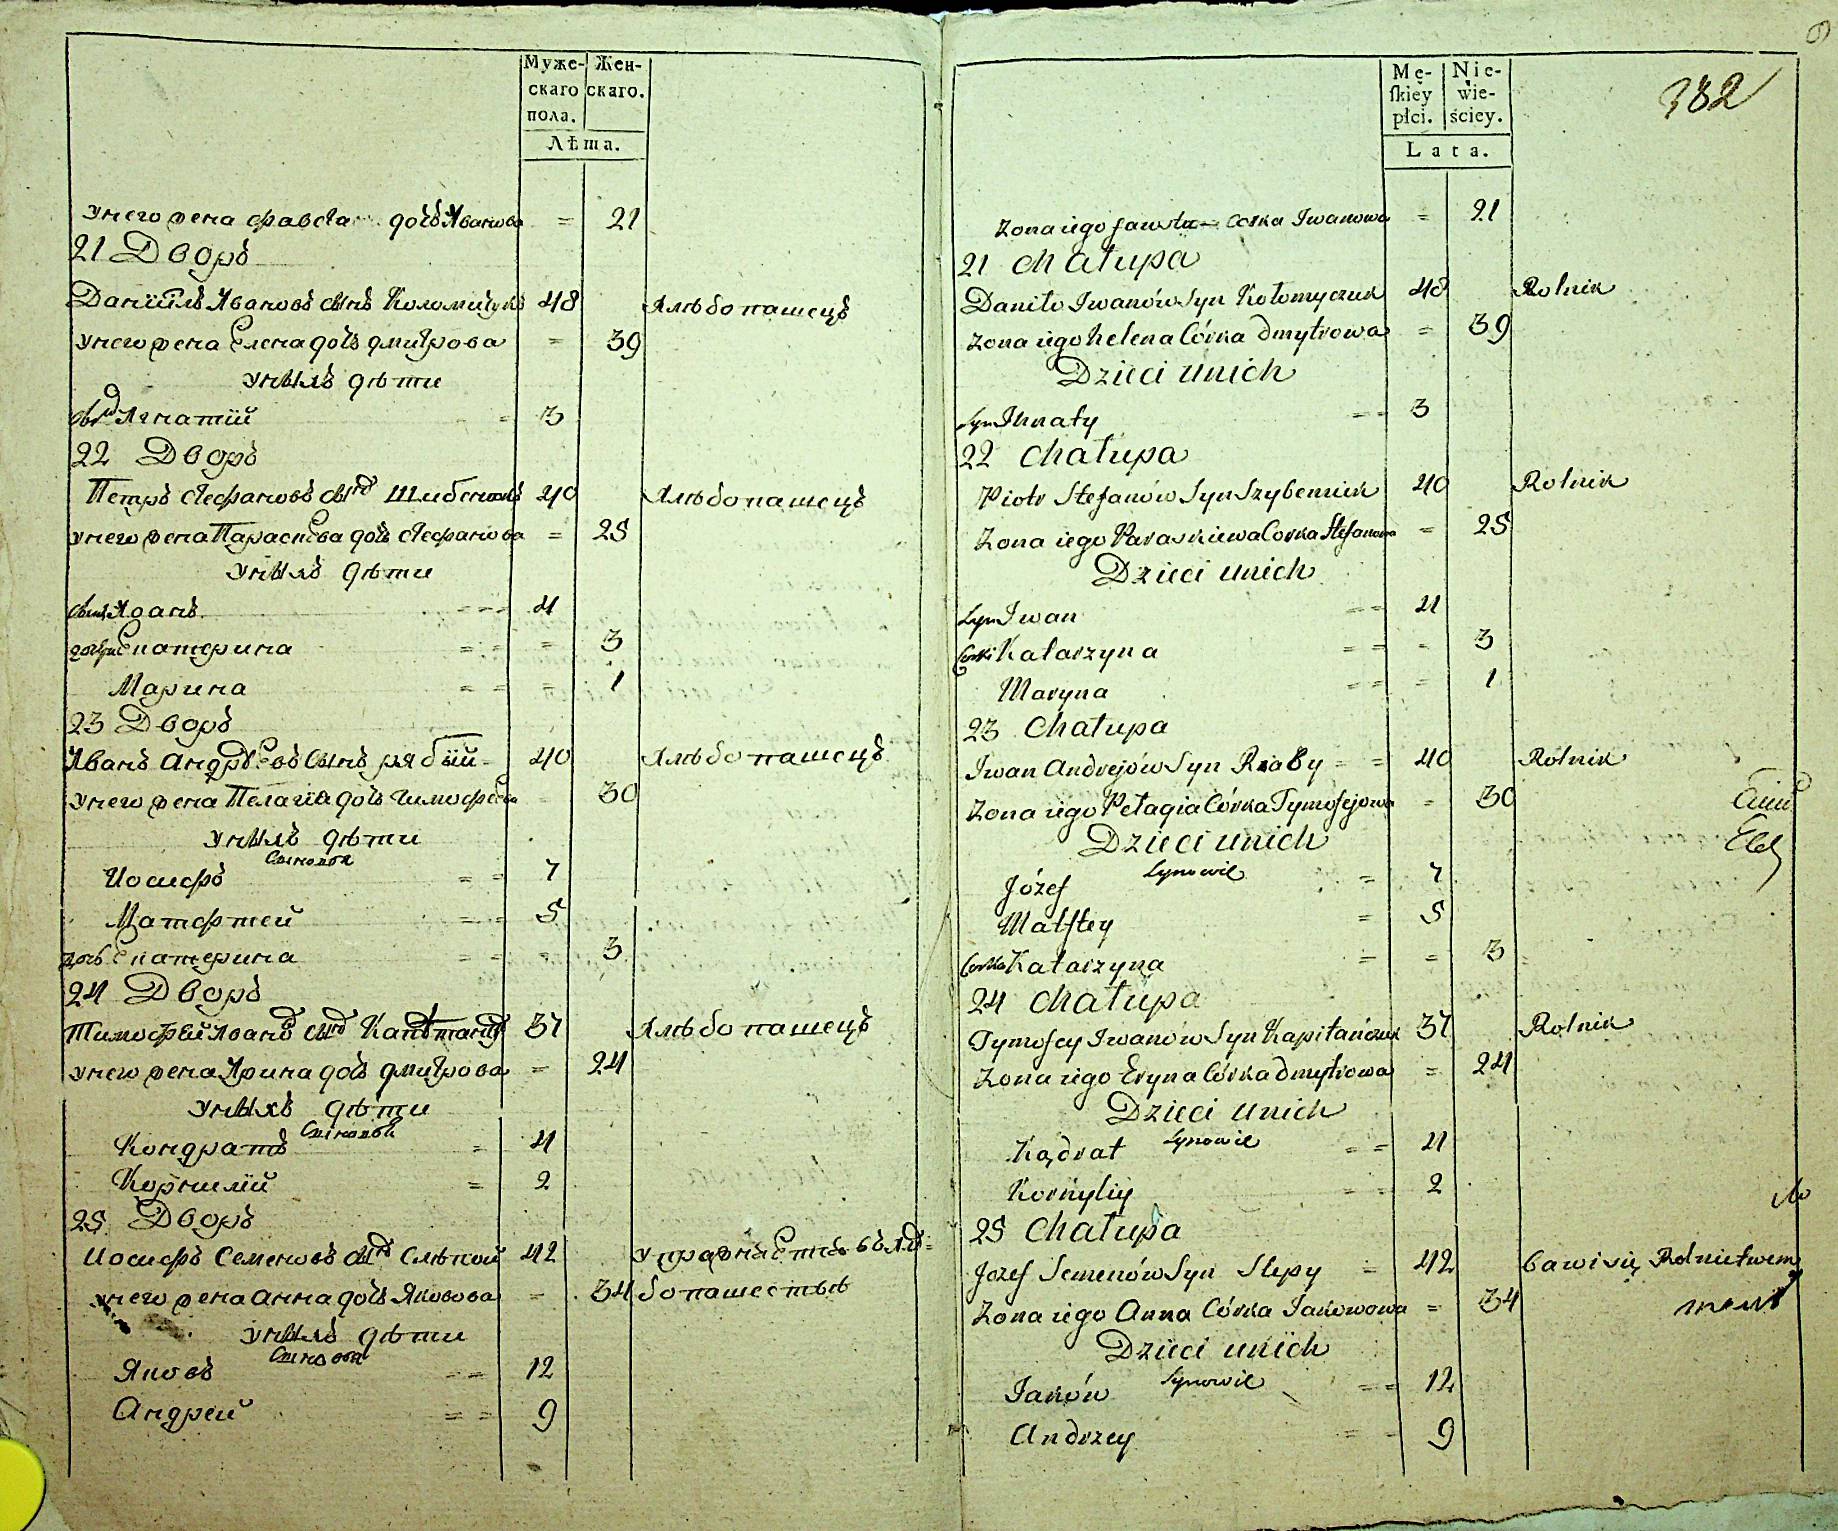 Муже-
скаго
пола.
Жен-
скаго.
Лѣта.
У него жена Фавста дочь Иванова = 21
21 Дворъ
Даніилъ Ивановъ сынъ Коломийчукъ 48 Хлѣбопашецъ
У него жена Елена дочь Дмитрова = 39
У нихъ дѣти
сынъ Игнатій = 3
22 Дворъ
Петръ Стефановъ сынъ 40 Хлѣбопашецъ
У него жена Параскева дочь Стефанова = 25
У нихъ дѣти
сынъ Иоанъ = = = 4
дочери Екатерина = = = 3
Марина = = = 1
23 Дворъ
Иванъ Андрѣевъ сынъ Рябый 40 Хлѣбопашецъ
У него жена Пелагія дочь Тимофѣева = 30
У нихъ дѣти
Сыновья
Иосифъ = = 7
Матфтей = = 5
дочь Екатерина = = = 3
24 Дворъ
Тимофѣй Ивановъ сынъ 37 Хлѣбопашецъ
У него жена Ирина дочь Дмитрова = 24
У нихъ дѣти
Сыновья
Кондратъ = 4
Корнилій = 2
25 Дворъ
Иосифъ Семеновъ сынъ Слѣпой 42 Упражняется въ хлѣ=
У него жена Анна дочь Яковова = 34 бопашествѣ
У нихъ дѣти
Сыновья
Яковъ = = 12
Андрей = = 9
382
Mę-
skiey
płci.
Nie-
wie-
ściey.
Lata.
Zona iego Fawsta Corka Iwanowa = 21
21 Chałupa
Daniło Iwanów Syn Kołomyczuk 48 Rolnik
Zona iego Helena Córka Dmytrowa = 39
Dzieci u nich
Syn Ihnaty = = 3
22 Chałupa
Piotr Stefanów Syn Szybennik 40 Rolnik
Zona iego Paraskiewa Corka Stefanowa = 25
Dzieci u nich
Syn Iwan = = 4
Corki Katarzyna = = = 3
Maryna = = = 1
23 Chałupa
Iwan Andrejów Syn Riaby = = 40 Rolnik
Zona iego Pełagia Córka Tymofejowa = 30
Dzieci u nich
Synowie
Józef = 7
Matftey = 5
Corka Katarzyna = = 3
24 Chałupa
Tymofey Iwanów Syn Kapitańczuk 37 Rolnik
Zona iego Eryna Córka Dmytrowa = 24
Dzieci u nich
Synowie
Kądrat = = 4
Kornyliy = = 2
25 Chałupa
Jozef Semenów Syn Slepy = 42 bawi się Rolnictwem
Zona iego Anna Córka Jakowowa = 34
Dzieci u nich
Synowie
Jaków = = 12
Andrzey = = 9